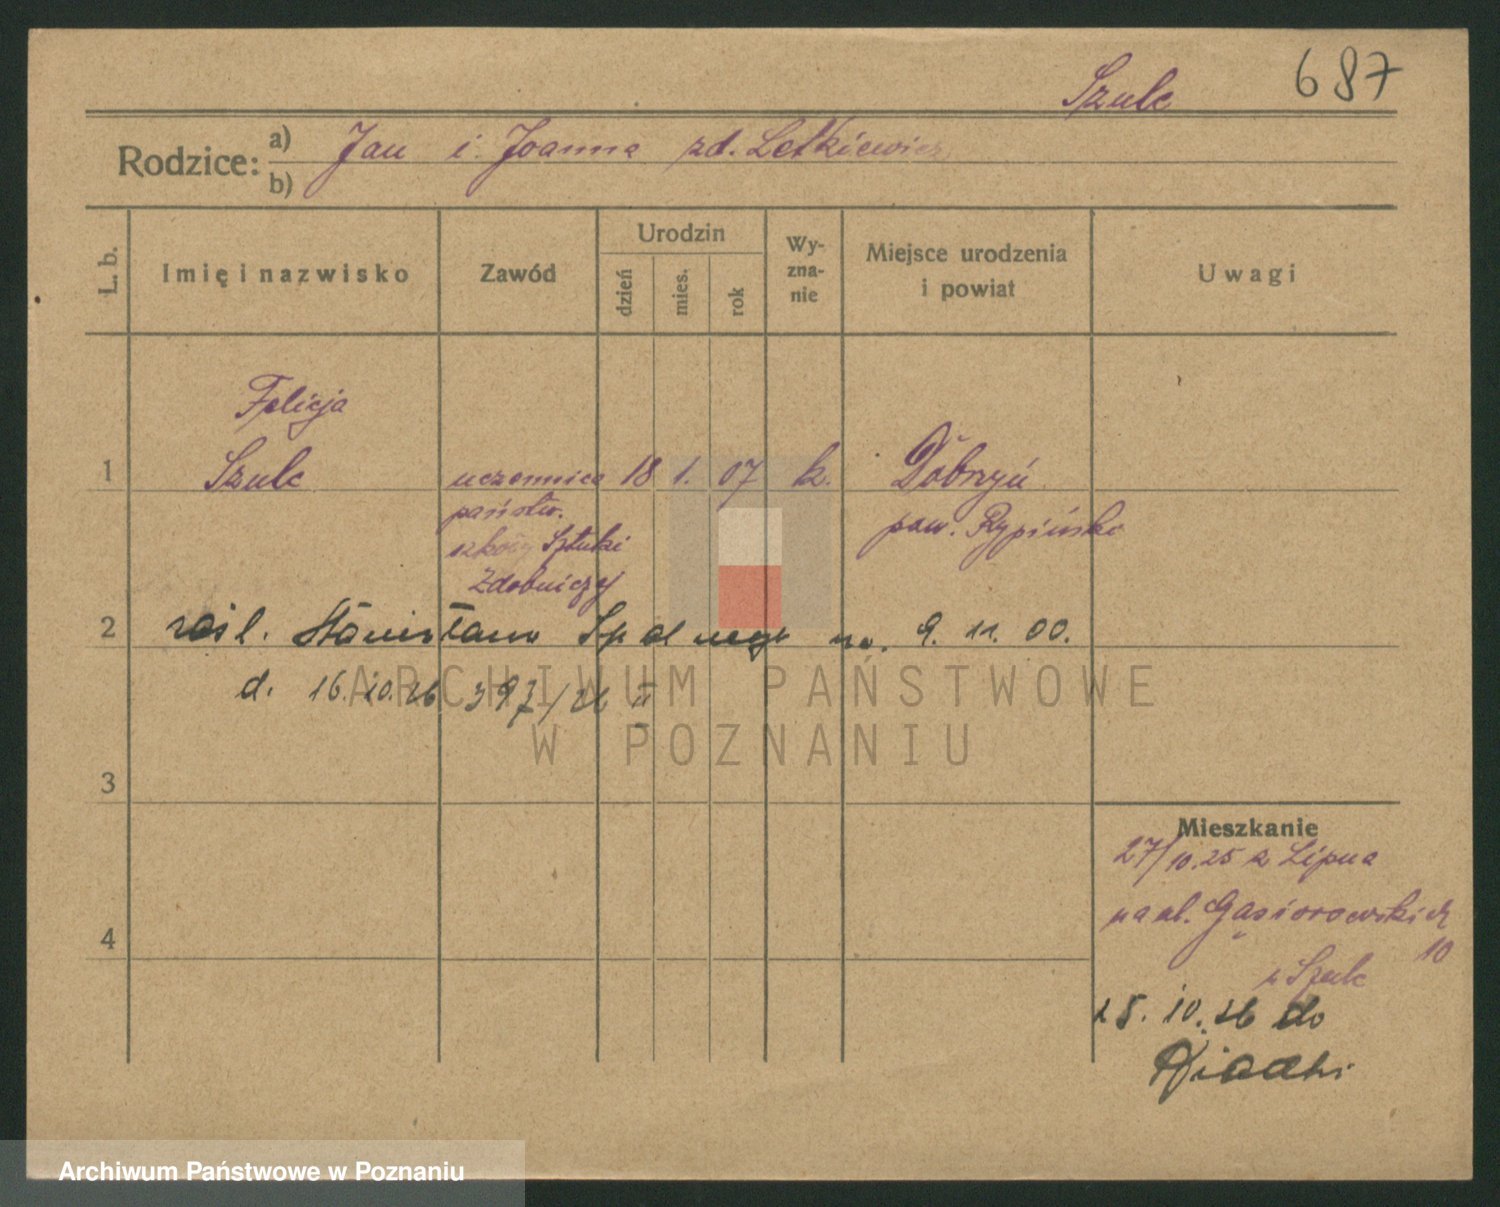 Szulc
687
Rodzice: a) Jan i Joanna zd. Letkiewicz
b)
L. b.
Imię i nazwisko
Zawód
Urodzin
dzień
mies.
rok
Wy-
zna-
nie
Miejsce urodzenia
i powiat
Uwagi
Felicja
1 Szulc uczennica 18 1. 07 k. Dobrzyń
państw. pow. Rypiński
szkoły Sztuki
Zdobniczej
2 zaśl. Stanisława ur. 9. 11. 00.
d. 16.10.26 397/26 II
ARCHIWUM PAŃSTWOWE
W POZNANIU
3
4
Mieszkanie
27/10.25 z Lipna
na ul. Gąsiorowskich
10
u Szulc
25. 10. 26 do
Archiwum Państwowe w Poznaniu